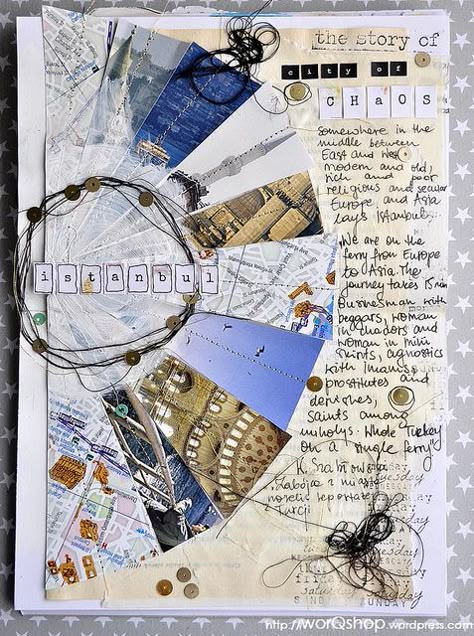 the story of
city of
CHAOS
somewhere in the
middle between
East and West
modern and old,
rich and poor
religious and secular
Europe and Asia
lays Istanbul.
"We are on the
ferry from Europe
to Asia. The
journey takes 15 min
Businesman with
beggars, woman
in chadors and
woman in mini
skirts, agnostics
with Imams,
prostitutes and
dervishes,
saints among
unholys. Whole Turkey
on a single ferry"
istanbul
W. Szabłowski
"Zabójca z miasta
moreli reportaże
z Turcji
Tuesday
Tuesday
friday
saturday
SUNDAY
http://worQshop.wordpress.com